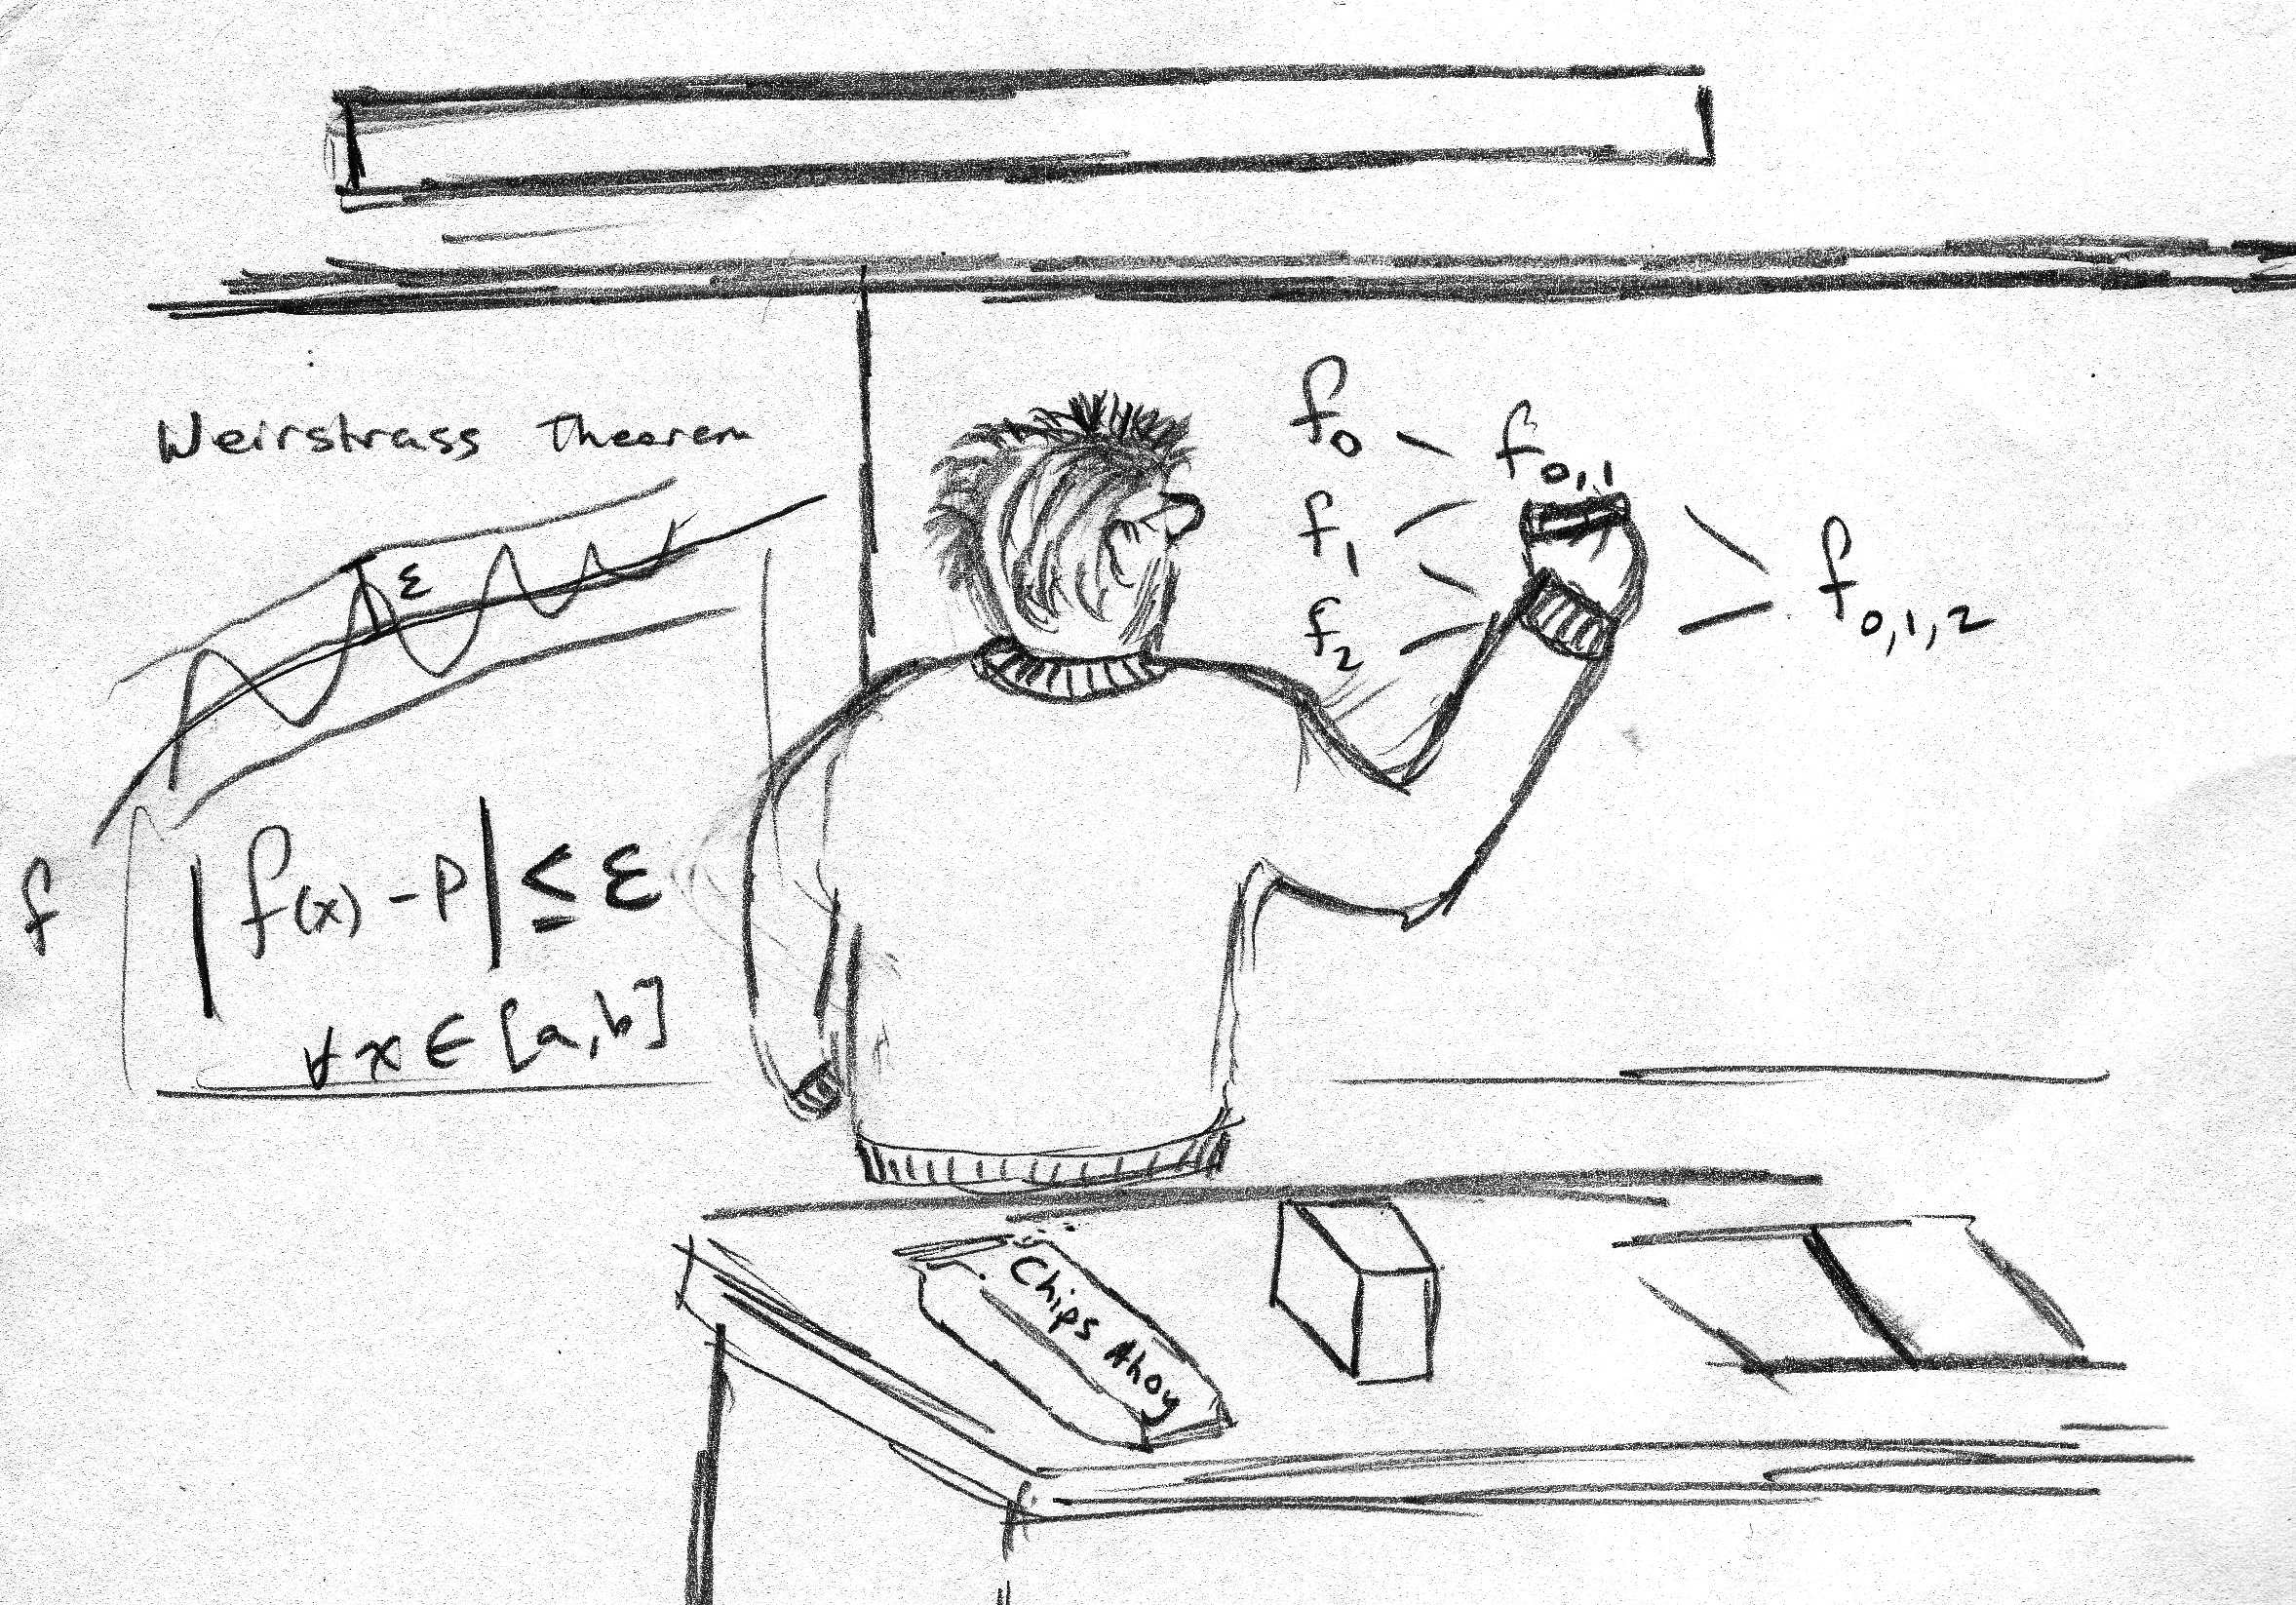 Weirstrass Theorem
ε
f
|f(x) - P| ≤ ε
∀ x ∈ [a,b]
f₀
f₀,₁
f₁
f₀,₁,₂
f₂
Chips Ahoy